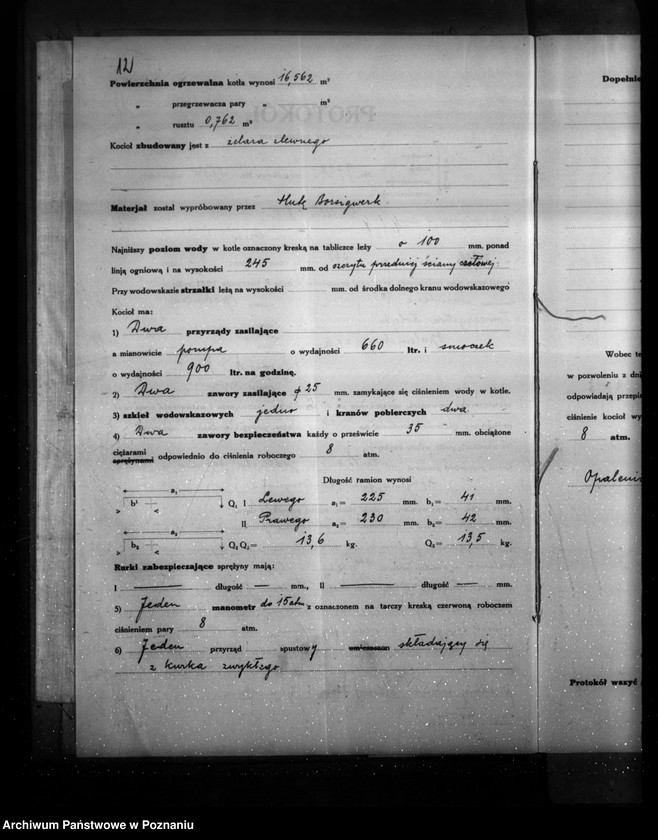 12
Powierzchnia ogrzewalna kotła wynosi 16,562 m²
„ przegrzewacza pary „ m²
„ rusztu 0,762 m²
Kocioł zbudowany jest z żelaza zlewnego
Materjał został wypróbowany przez Hutę Borsigwerk
Najniższy poziom wody w kotle oznaczony kreską na tabliczce leży o 100 mm. ponad
linją ogniową i na wysokości 245 mm. od szczytu przedniej ściany czołowej
Przy wodowskazie strzałki leżą na wysokości mm. od środka dolnego kranu wodowskazowego
Kocioł ma:
1) Dwa przyrządy zasilające
a mianowicie pompa o wydajności 660 ltr. i smoczek
o wydajności 900 ltr. na godzinę.
2) Dwa zawory zasilające φ 25 mm. zamykające się ciśnieniem wody w kotle.
3) szkieł wodowskazowych jedno i kranów pobierczych dwa
4) Dwa zawory bezpieczeństwa każdy o prześwicie 35 mm. obciążone
ciężarami
sprężynami odpowiednio do ciśnienia roboczego 8 atm.
Długość ramion wynosi
a₁
b¹ Q₁ I Lewego a₁= 225 mm. b₁= 41 mm.
II Prawego a₂= 230 mm. b₂= 42 mm.
a₂
b₂ Q₂ Q₁= 13,6 kg. Q₂= 13,5 kg.
Rurki zabezpieczające sprężyny mają:
I — długość — mm., II — długość — mm.
5) Jeden manometr do 15 atm z oznaczonem na tarczy kreską czerwoną roboczem
ciśnieniem pary 8 atm.
6) Jeden przyrząd spustowy umieszczon składający się
z kurka zwykłego
PROTOKÓŁ
Dopełnie
Wobec te
w pozwoleniu z dni
odpowiadają przepis
ciśnienie kocioł wy
8 atm.
Opaleni
Protokół wszyć
Archiwum Państwowe w Poznaniu